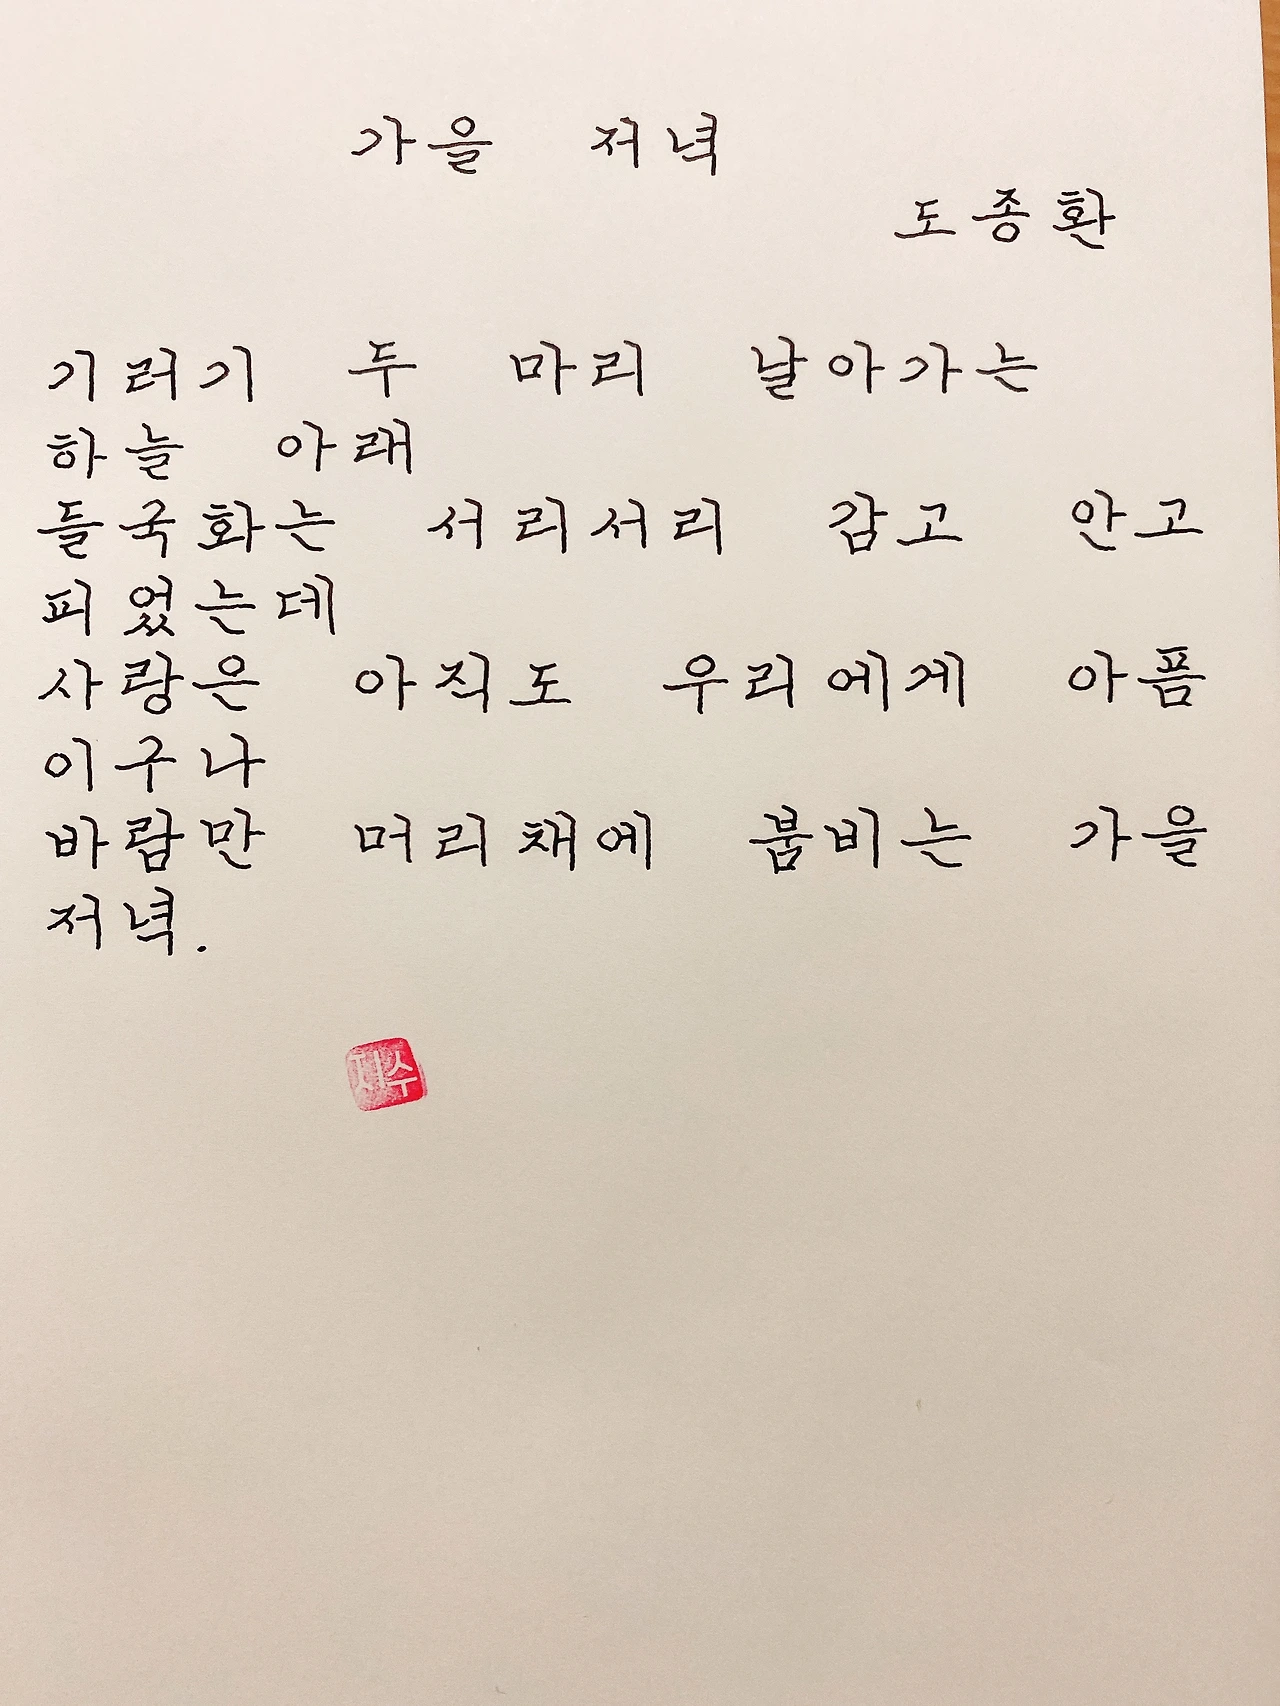 가을 저녁
도종환
기러기 두 마리 날아가는
하늘 아래
들국화는 서리서리 감고 안고
피었는데
사랑은 아직도 우리에게 아픔
이구나
바람만 머리채에 붐비는 가을
저녁.